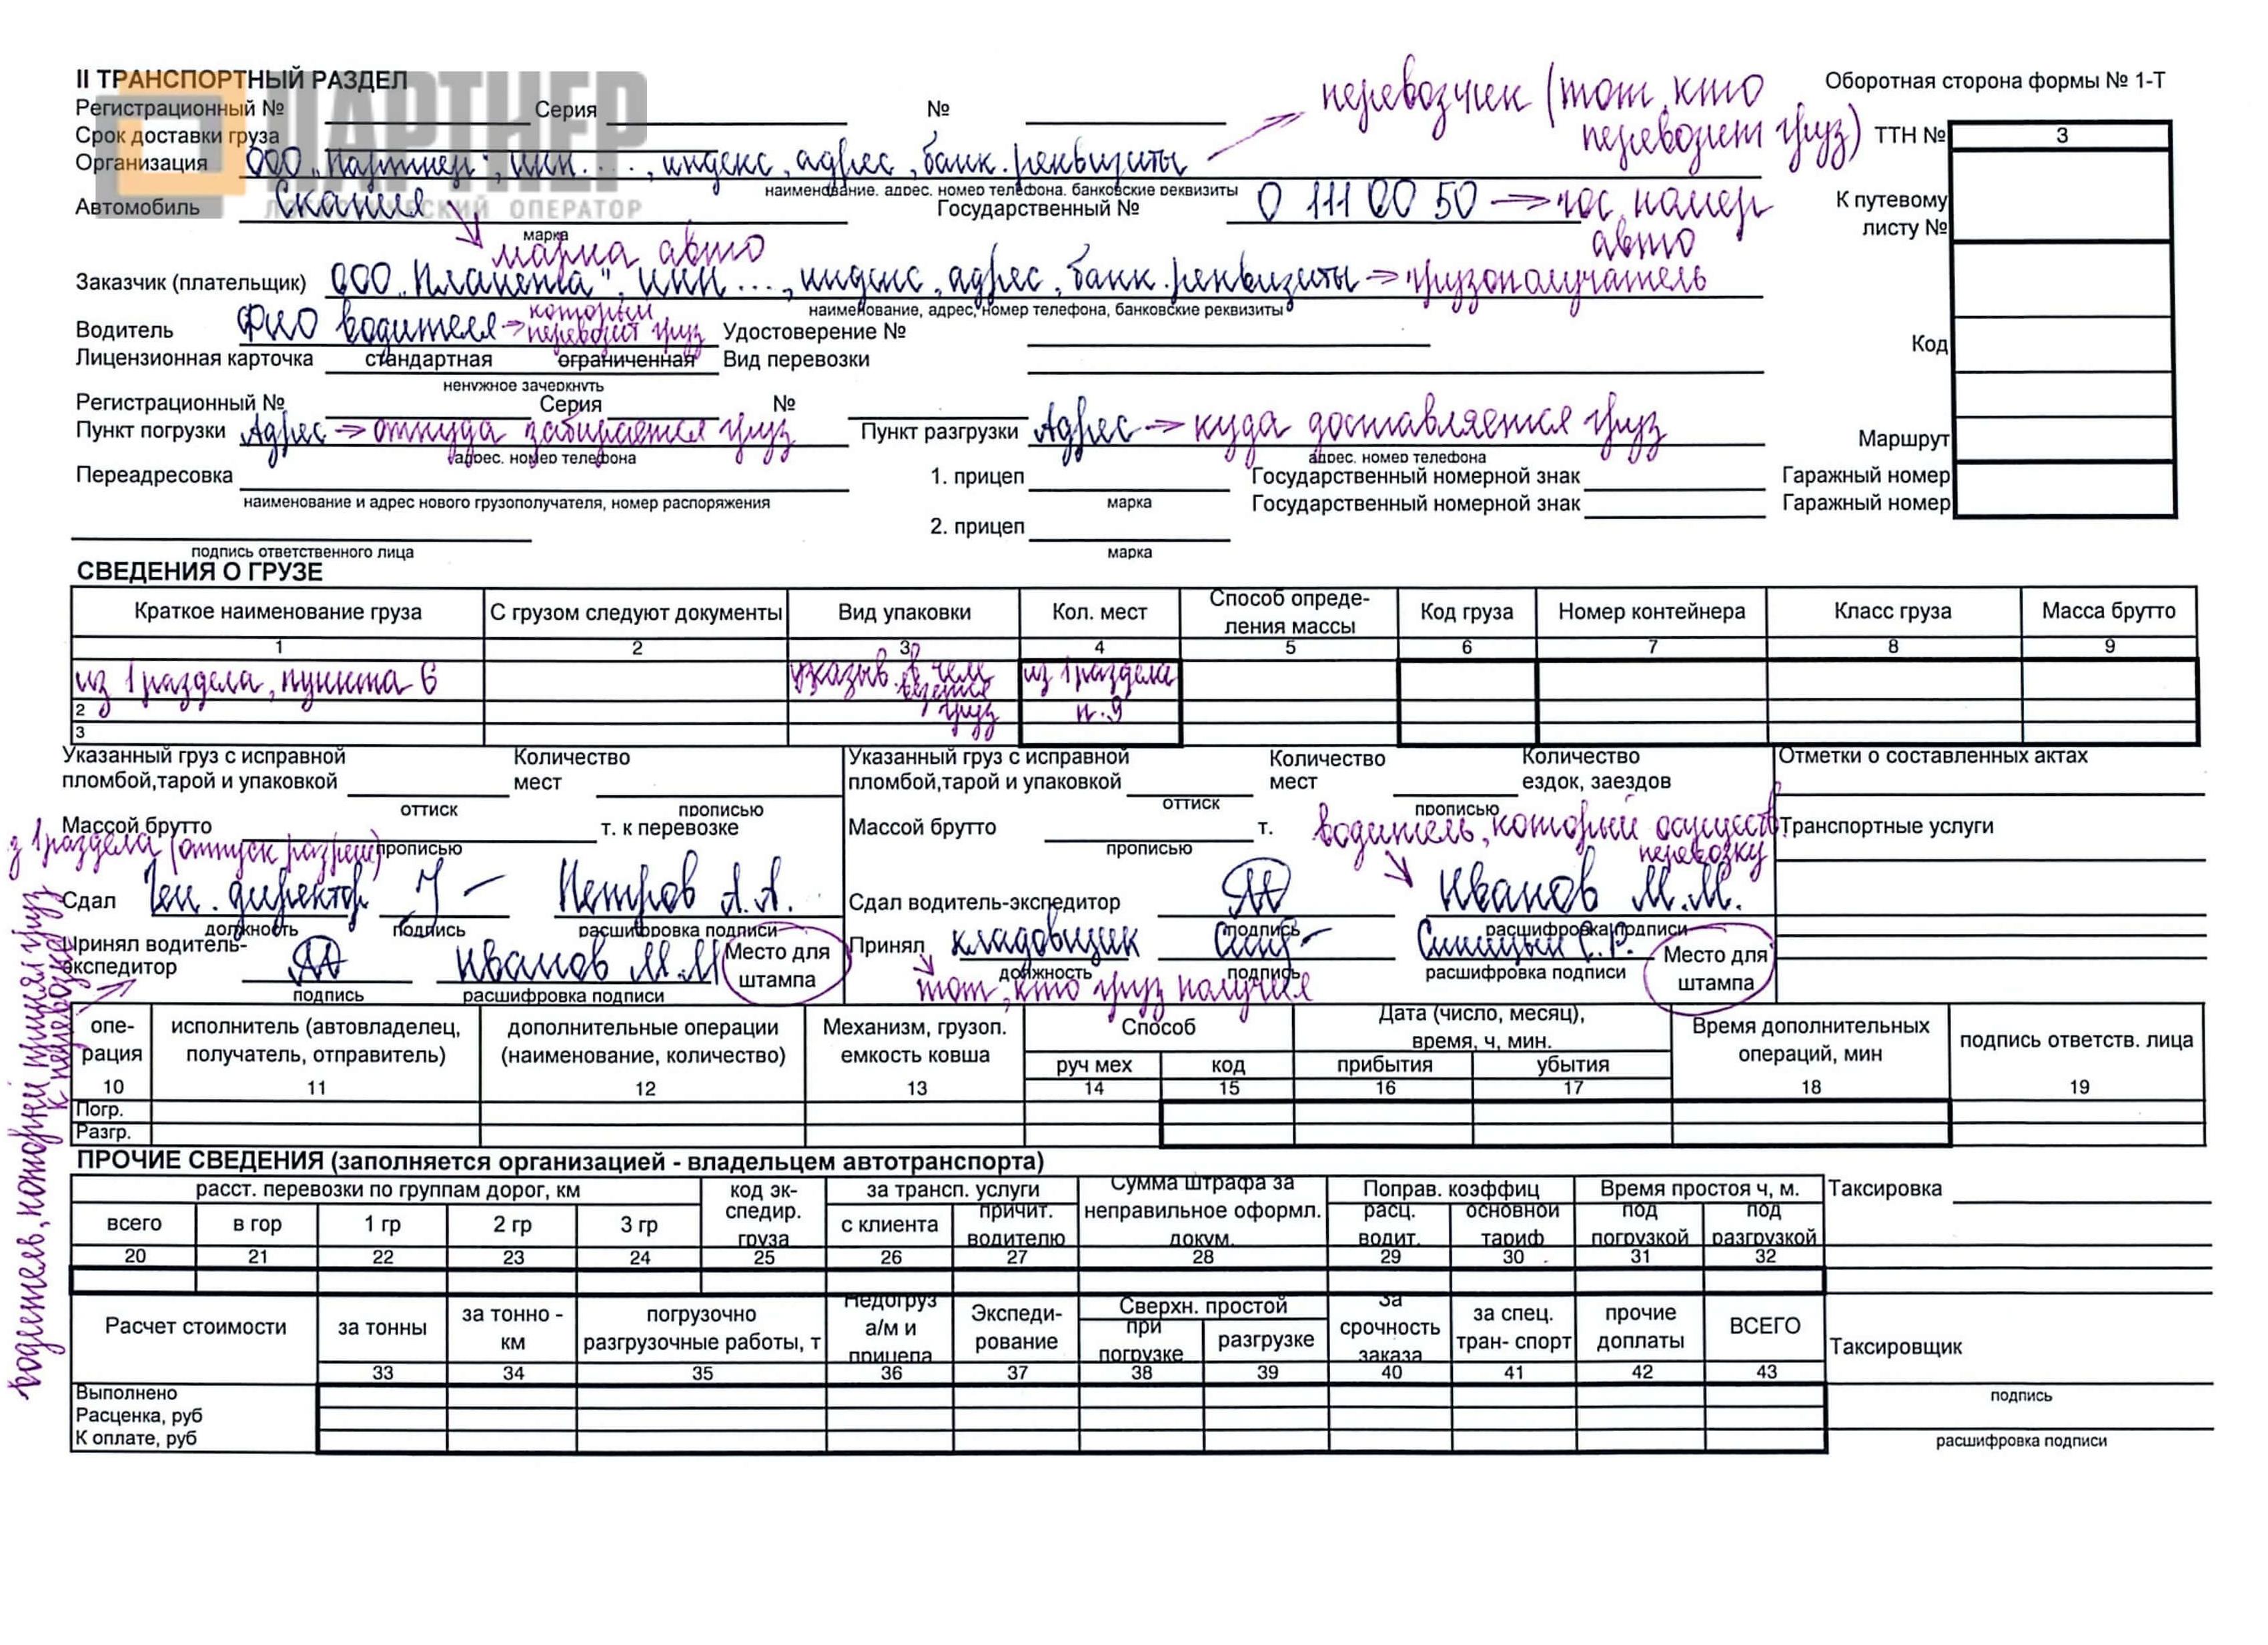 II ТРАНСПОРТНЫЙ РАЗДЕЛ
Оборотная сторона формы № 1-Т
ПАРТНЕР
ЛОГИСТИЧЕСКИЙ ОПЕРАТОР
Регистрационный № Серия №
перевозчик (тот, кто перевозит груз)
Срок доставки груза
ТТН № 3
Организация ООО "Партнер", ИНН...., индекс, адрес, банк. реквизиты
наименование, адрес, номер телефона, банковские реквизиты
Автомобиль Скания Государственный № О 111 ОО 50 → гос. номер авто
К путевому листу №
марка
марка авто
Заказчик (плательщик) ООО "Планета", ИНН..., индекс, адрес, банк. реквизиты → грузополучатель
наименование, адрес, номер телефона, банковские реквизиты
Водитель ФИО водителя → который перевозит груз Удостоверение №
Код
Лицензионная карточка стандартная ограниченная Вид перевозки
ненужное зачеркнуть
Регистрационный № Серия №
Пункт погрузки Адрес → откуда забирается груз Пункт разгрузки Адрес → куда доставляется груз
Маршрут
адрес, номер телефона адрес, номер телефона
Переадресовка 1. прицеп Государственный номерной знак Гаражный номер
наименование и адрес нового грузополучателя, номер распоряжения марка Государственный номерной знак Гаражный номер
2. прицеп
подпись ответственного лица марка
СВЕДЕНИЯ О ГРУЗЕ
Краткое наименование груза С грузом следуют документы Вид упаковки Кол. мест Способ опреде-ления массы Код груза Номер контейнера Класс груза Масса брутто
1 2 3 4 5 6 7 8 9
из 1 раздела, пункта 6 указыв. в чем везется груз из 1 раздела п. 9
2
3
Указанный груз с исправной пломбой,тарой и упаковкой Количество мест
оттиск прописью
Массой брутто т. к перевозке
прописью
з 1 раздела (отпуск разреш)
Сдал Ген. директор Петров А.А.
должность подпись расшифровка подписи
Принял водитель-экспедитор Иванов М.М Место для штампа
подпись расшифровка подписи
водитель, который принял груз к перевозке
Указанный груз с исправной пломбой,тарой и упаковкой Количество мест Количество ездок, заездов
оттиск прописью
Массой брутто т.
прописью
водитель, который осуществ. перевозку
Сдал водитель-экспедитор Иванов М.М.
подпись расшифровка подписи
Принял кладовщик Синицын С.Р. Место для штампа
должность подпись расшифровка подписи
тот, кто груз получил
Отметки о составленных актах
Транспортные услуги
опе-рация исполнитель (автовладелец, получатель, отправитель) дополнительные операции (наименование, количество) Механизм, грузоп. емкость ковша Способ Дата (число, месяц), время, ч, мин. Время дополнительных операций, мин подпись ответств. лица
руч мех код прибытия убытия
10 11 12 13 14 15 16 17 18 19
Погр.
Разгр.
ПРОЧИЕ СВЕДЕНИЯ (заполняется организацией - владельцем автотранспорта)
расст. перевозки по группам дорог, км код эк-спедир. груза за трансп. услуги Сумма штрафа за неправильное оформл. докум. Поправ. коэффиц Время простоя ч, м. Таксировка
всего в гор 1 гр 2 гр 3 гр с клиента причит. водителю расц. водит. основной тариф под погрузкой под разгрузкой
20 21 22 23 24 25 26 27 28 29 30 31 32
Расчет стоимости за тонны за тонно - км погрузочно разгрузочные работы, т Недогруз а/м и прицепа Экспеди-рование Сверхн. простой За срочность заказа за спец. тран- спорт прочие доплаты ВСЕГО
при погрузке разгрузке
Таксировщик
33 34 35 36 37 38 39 40 41 42 43
Выполнено
подпись
Расценка, руб
К оплате, руб
расшифровка подписи